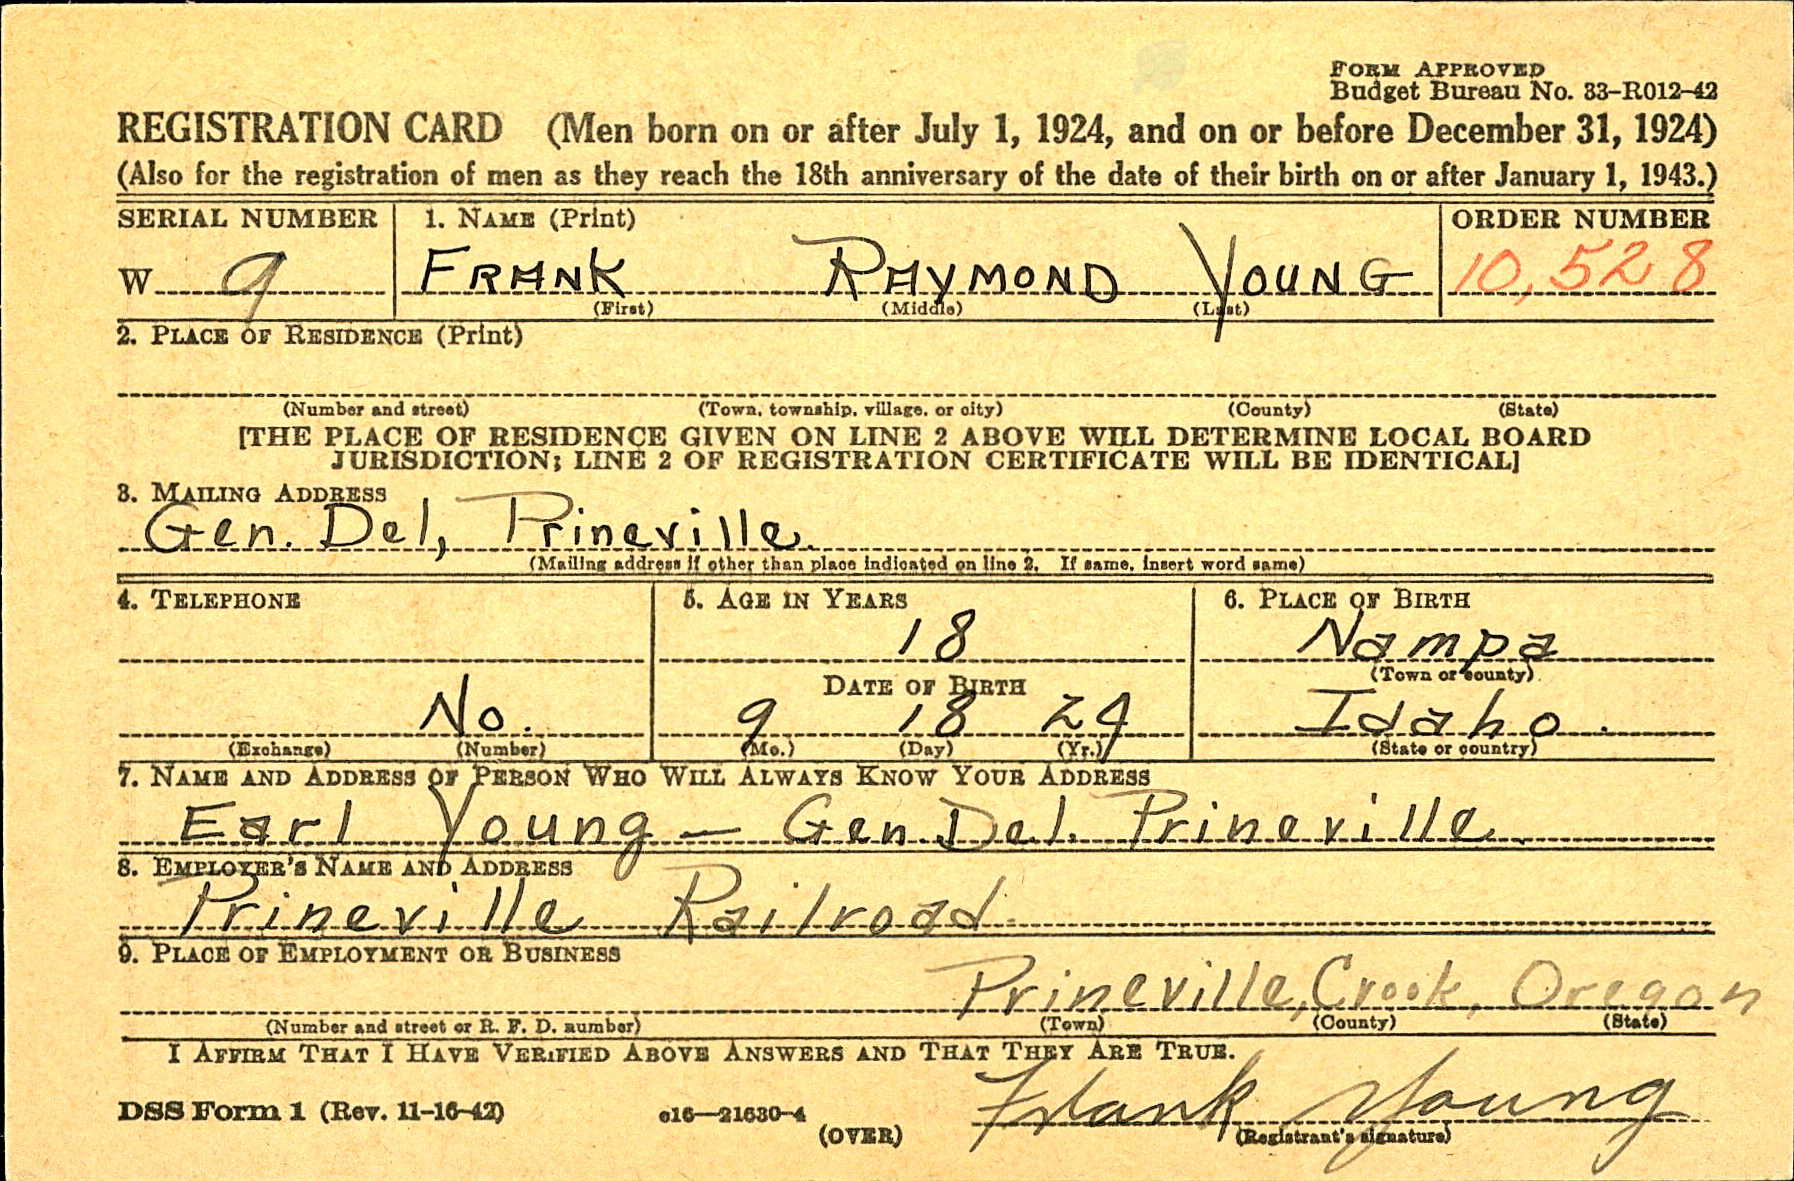 FORM APPROVED
Budget Bureau No. 33-R012-42
REGISTRATION CARD (Men born on or after July 1, 1924, and on or before December 31, 1924)
(Also for the registration of men as they reach the 18th anniversary of the date of their birth on or after January 1, 1943.)
SERIAL NUMBER 1. NAME (Print) ORDER NUMBER
W 9 FRANK RAYMOND YOUNG 10,528
(First) (Middle) (Last)
2. PLACE OF RESIDENCE (Print)
(Number and street) (Town, township, village, or city) (County) (State)
[THE PLACE OF RESIDENCE GIVEN ON LINE 2 ABOVE WILL DETERMINE LOCAL BOARD
JURISDICTION; LINE 2 OF REGISTRATION CERTIFICATE WILL BE IDENTICAL]
3. MAILING ADDRESS
Gen. Del, Prineville.
(Mailing address if other than place indicated on line 2. If same, insert word same)
4. TELEPHONE 5. AGE IN YEARS 6. PLACE OF BIRTH
18 Nampa
DATE OF BIRTH (Town or county)
No. 9 18 24 Idaho.
(Exchange) (Number) (Mo.) (Day) (Yr.) (State or country)
7. NAME AND ADDRESS OF PERSON WHO WILL ALWAYS KNOW YOUR ADDRESS
Earl Young — Gen. Del. Prineville.
8. EMPLOYER'S NAME AND ADDRESS
Prineville Railroad.
9. PLACE OF EMPLOYMENT OR BUSINESS
Prineville, Crook, Oregon
(Number and street or R. F. D. number) (Town) (County) (State)
I AFFIRM THAT I HAVE VERIFIED ABOVE ANSWERS AND THAT THEY ARE TRUE.
DSS Form 1 (Rev. 11-16-42) c16—21630-4 Frank Young
(OVER) (Registrant's signature)